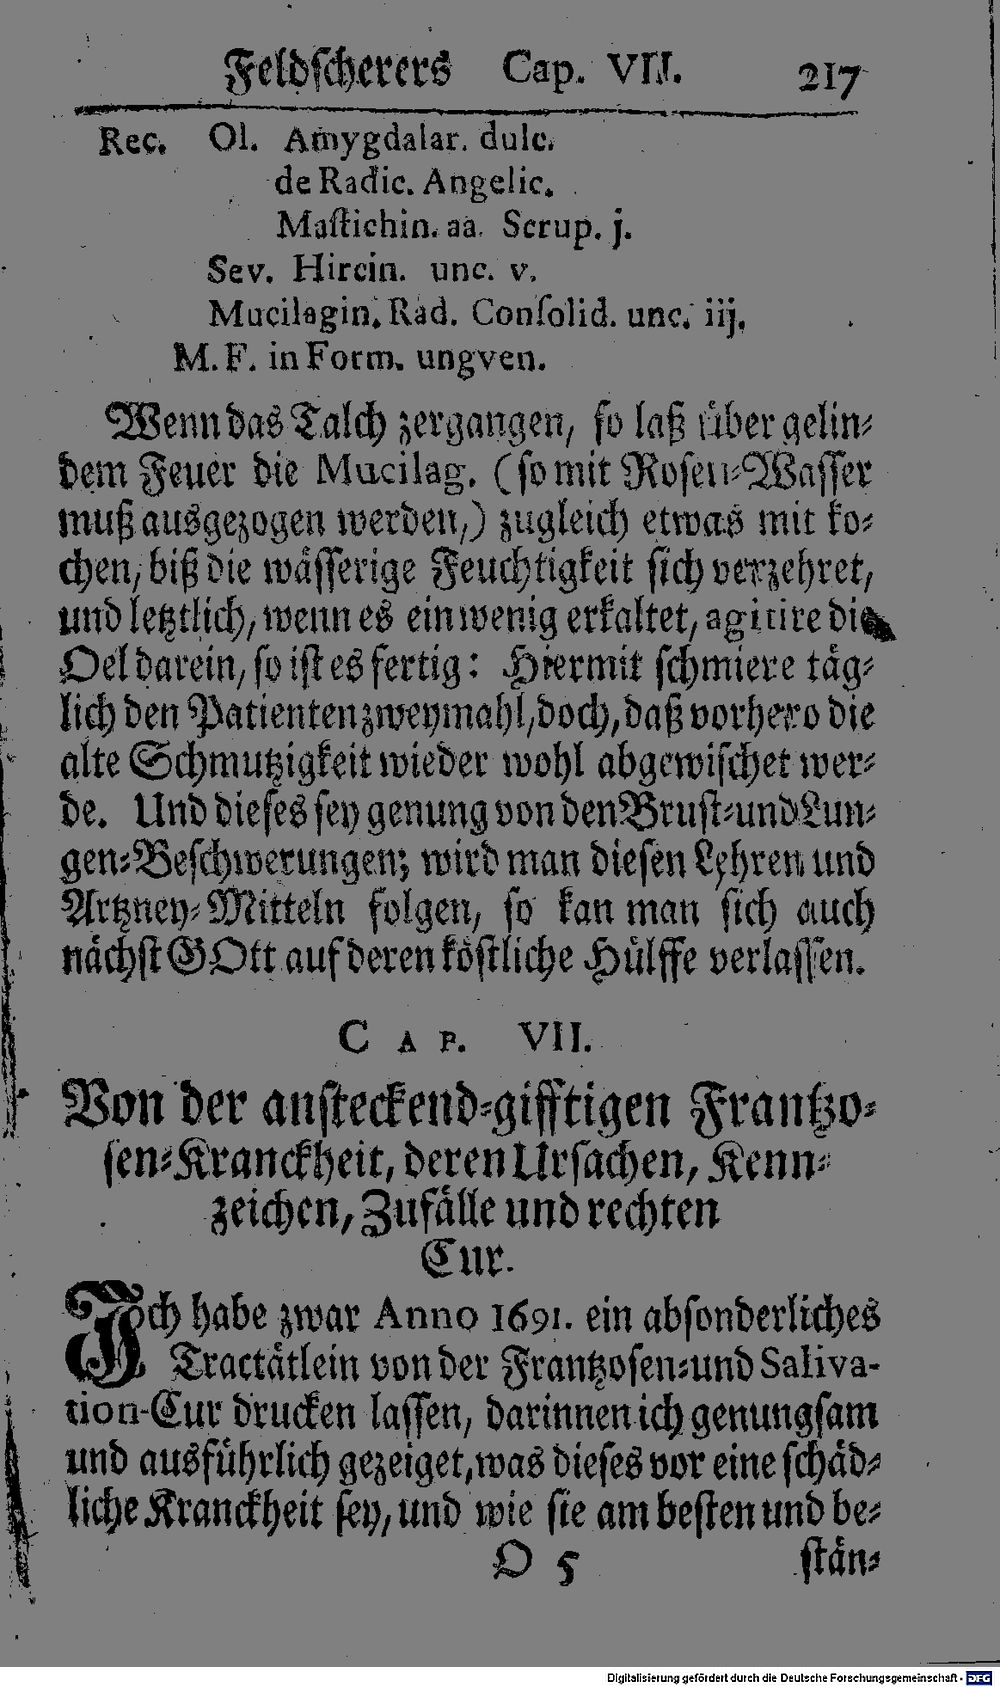 Feldscherers Cap. VII. 217
Rec. Ol. Amygdalar. dulc.
de Radic. Angelic.
Mastichin. aa. Scrup. j.
Sev. Hircin. unc. v.
Mucilagin. Rad. Consolid. unc. iij.
M. F. in Form. ungven.
Wenn das Talch zergangen, so laß über gelin-
dem Feuer die Mucilag. (so mit Rosen-Wasser
muß ausgezogen werden,) zugleich etwas mit ko-
chen, biß die wässerige Feuchtigkeit sich verzehret,
und letztlich, wenn es ein wenig erkaltet, agitire die
Oel darein, so ist es fertig: Hiermit schmiere täg-
lich den Patienten zweymahl, doch, daß vorhero die
alte Schmutzigkeit wieder wohl abgewischet wer-
de. Und dieses sey genung von den Brust- und Lun-
gen-Beschwerungen; wird man diesen Lehren und
Artzney-Mitteln folgen, so kan man sich auch
nächst GOtt auf deren köstliche Hülffe verlassen.
CAP. VII.
Von der ansteckend-gifftigen Frantzo-
sen-Kranckheit, deren Ursachen, Kenn-
zeichen, Zufälle und rechten
Cur.
Ich habe zwar Anno 1691. ein absonderliches
Tractätlein von der Frantzosen- und Saliva-
tion-Cur drucken lassen, darinnen ich genungsam
und ausführlich gezeiget, was dieses vor eine schäd-
liche Kranckheit sey, und wie sie am besten und be-
O 5 stän-
Digitalisierung gefördert durch die Deutsche Forschungsgemeinschaft - DFG